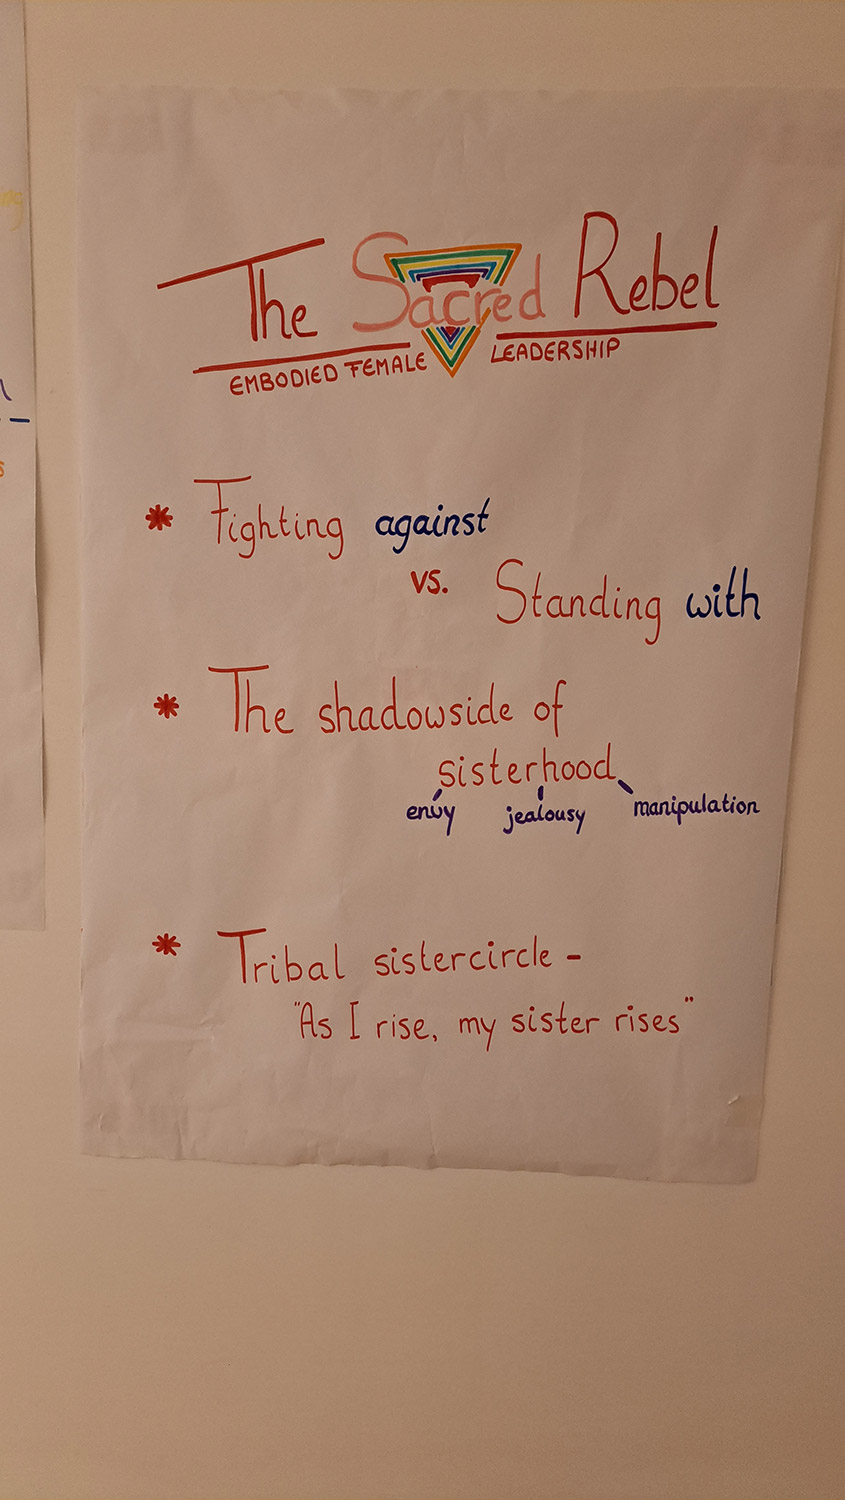 The Sacred Rebel
EMBODIED FEMALE LEADERSHIP
* Fighting against
vs. Standing with
* The shadowside of
sisterhood
envy jealousy manipulation
* Tribal sistercircle -
"As I rise, my sister rises"